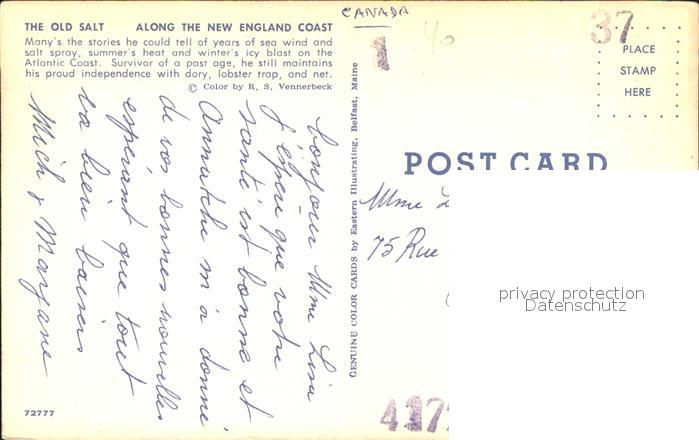 CANADA
THE OLD SALT ALONG THE NEW ENGLAND COAST
Many's the stories he could tell of years of sea wind and
salt spray, summer's heat and winter's icy blast on the
Atlantic Coast. Survivor of a past age, he still maintains
his proud independence with dory, lobster trap, and net.
© Color by R. S. Vennerbeck
bonjour Mme Lisa
j'espère que votre
santé est bonne et
m'a donné
de vos bonnes nouvelles
espérant que tout
va bien baisers
Mich &
72777
GENUINE COLOR CARDS by Eastern Illustrating, Belfast, Maine
1
40
37
PLACE
STAMP
HERE
POST CARD
Mme
75 Rue
privacy protection
Datenschutz
417